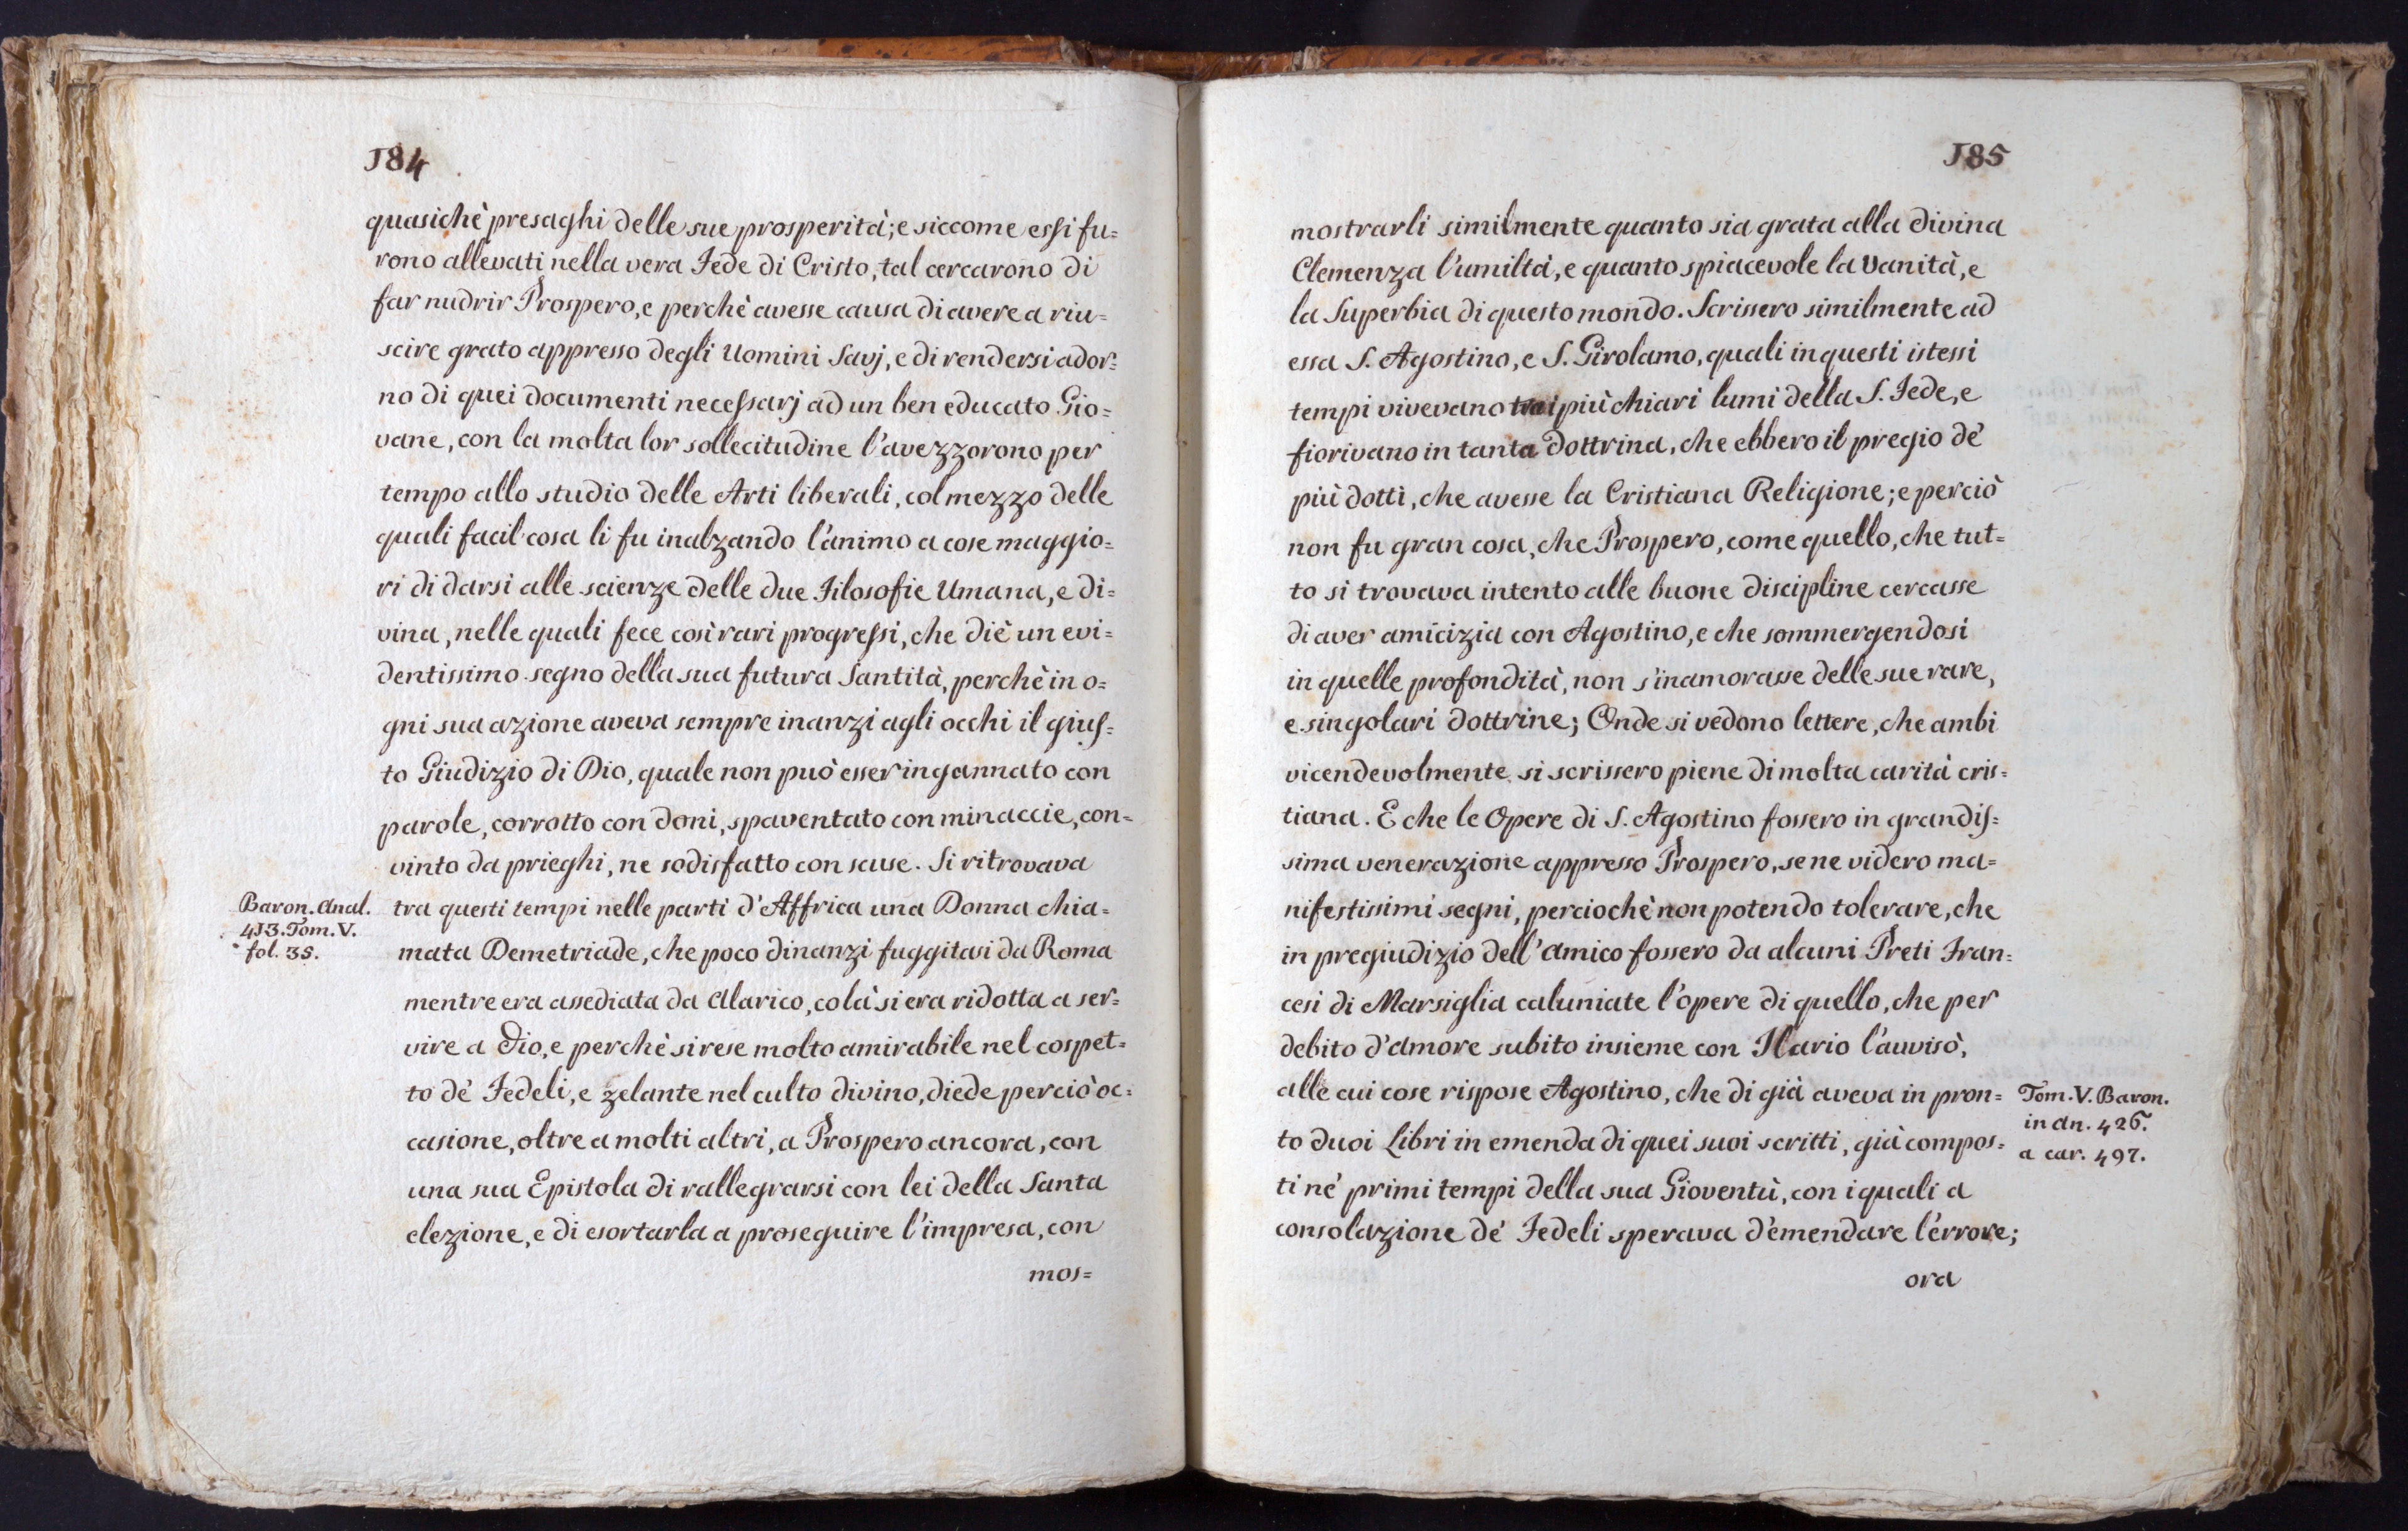 184
quasichè presaghi delle sue prosperità; e siccome essi fu=
rono allevati nella vera Fede di Cristo, tal cercarono di
far nudrir Prospero, e perchè avesse causa di avere a riu=
scire grato appresso degli Uomini Savj, e di rendersi ador=
no di quei documenti necessarj ad un ben educato Gio=
vane, con la molta lor sollecitudine l'avezzorono per
tempo allo studio delle Arti liberali, col mezzo delle
quali facil cosa li fu inalzando l'animo a cose maggio=
ri di darsi alle scienze delle due Filosofie Umana, e di=
vina, nelle quali fece così rari progressi, che diè un evi=
dentissimo segno della sua futura Santità, perchè in o=
gni sua azione aveva sempre inanzi agli occhi il gius=
to Giudizio di Dio, quale non può esser ingannato con
parole, corrotto con doni, spaventato con minaccie, con=
vinto da prieghi, ne sodisfatto con scuse. Si ritrovava
Baron. Anal.
413. Tom. V.
fol. 35.
tra questi tempi nelle parti d'Affrica una Donna chia=
mata Demetriade, che poco dinanzi fuggitasi da Roma
mentre era assediata da Alarico, colà si era ridotta a ser=
vire a Dio, e perchè si rese molto amirabile nel cospet=
to de' Fedeli, e zelante nel culto divino, diede perciò oc=
casione, oltre a molti altri, a Prospero ancora, con
una sua Epistola di rallegrarsi con lei della Santa
elezione, e di esortarla a proseguire l'impresa, con
mos=
185
mostrarli similmente quanto sia grata alla divina
Clemenza l'umiltà, e quanto spiacevole la Vanità, e
la Superbia di questo mondo. Scrissero similmente ad
essa S. Agostino, e S. Girolamo, quali in questi istessi
tempi vivevano tra i più chiari lumi della S. Fede, e
fiorivano in tanta dottrina, che ebbero il pregio de'
più dotti, che avesse la Cristiana Religione; e perciò
non fu gran cosa, che Prospero, come quello, che tut=
to si trovava intento alle buone discipline cercasse
di aver amicizia con Agostino, e che sommergendosi
in quelle profondità, non s'inamorasse delle sue rare,
e singolari dottrine; Onde si vedono lettere, che ambi
vicendevolmente si scrissero piene di molta carità cris=
tiana. E che le Opere di S. Agostino fossero in grandis=
sima venerazione appresso Prospero, se ne videro ma=
nifestissimi segni, perciochè non potendo tolerare, che
in pregiudizio dell'amico fossero da alcuni Preti Fran=
cesi di Marsiglia caluniate l'opere di quello, che per
debito d'amore subito insieme con Ilario l'avvisò,
alle cui cose rispose Agostino, che di già aveva in pron=
to duoi Libri in emenda di quei suoi scritti, già compos=
ti ne' primi tempi della sua Gioventù, con i quali a
consolazione de' Fedeli sperava d'emendare l'errore;
Tom. V. Baron.
in An. 426.
a car. 497.
ora